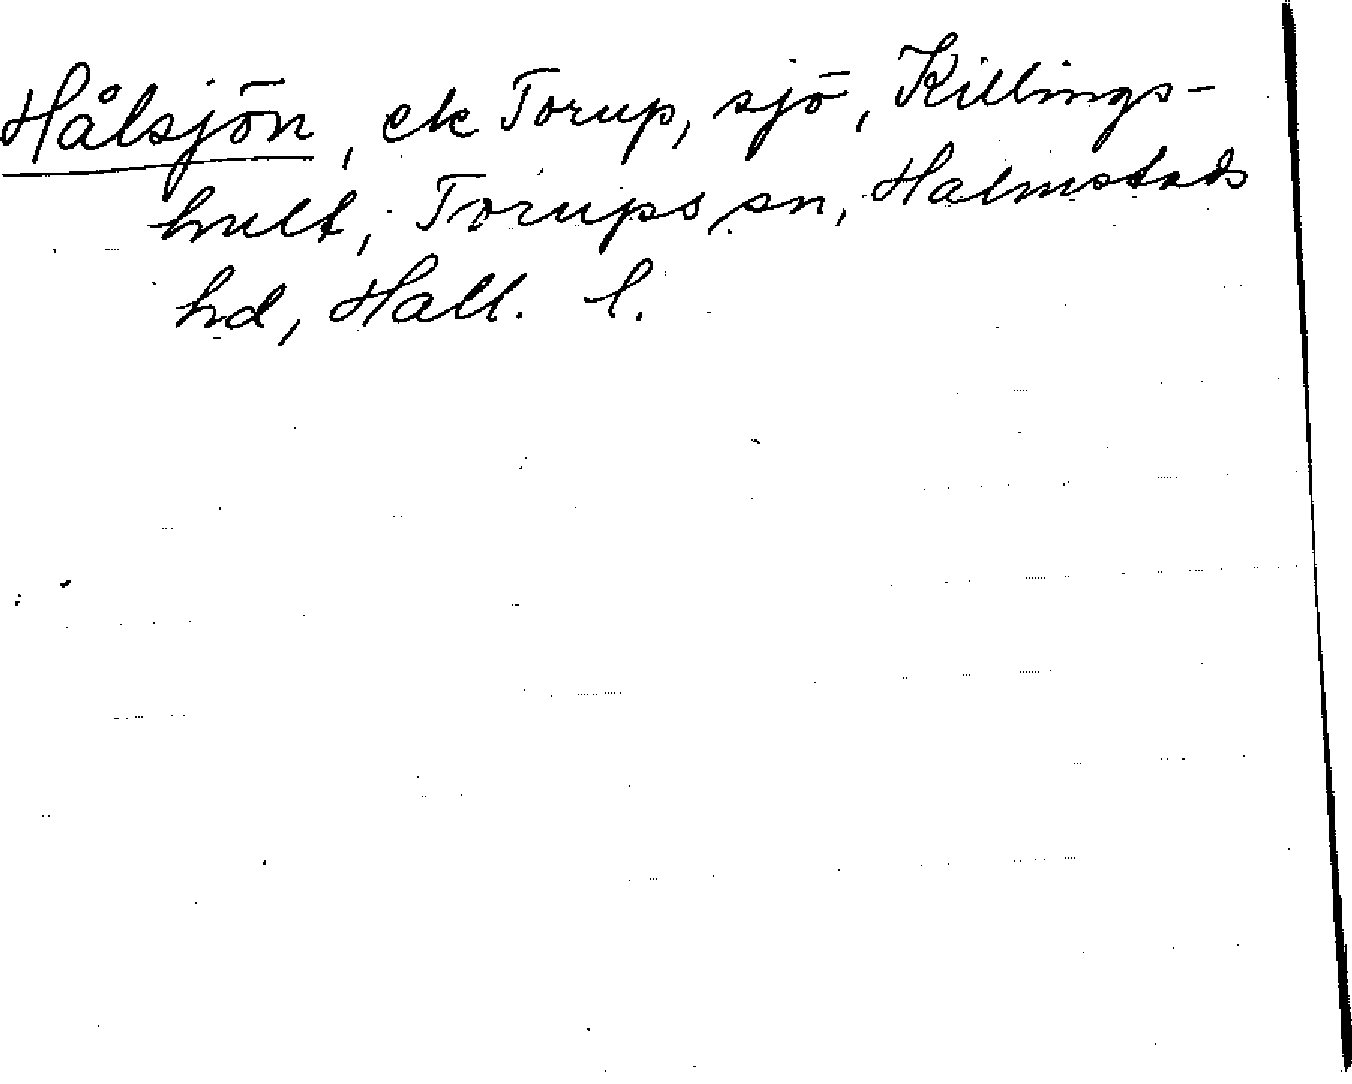 Hålsjön, ek Torup, sjö, Killings-
hult, Torups sn, Halmstads
hd, Hall. l.